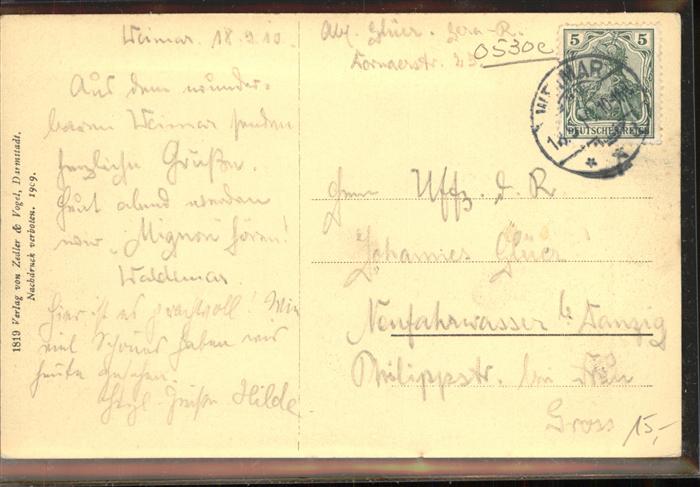 Weimar. 18.9.10.
Aus dem wunder-
baren Weimar senden
herzliche Grüße.
Heut abend werden
wir „Mignon" hören!
Waldemar.
Hier ist es prachtvoll! Wie
viel Schönes haben wir
heute gesehen.
Herzl. Grüße Hilde
Abs. Glüer. Gera-R.
23.
0530e
5 5
DEUTSCHES REICH
WEIMAR
Herrn Uffz. d. R
Johannes Glüer
Neufahrwasser b. Danzig
Philippstr. bei Frau
Gross
15,-
1813 Verlag von Zedler & Vogel, Darmstadt.
Nachdruck verboten. 1909.